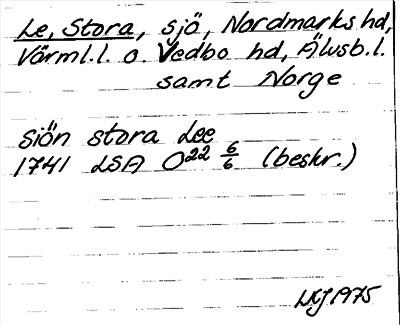 Le, Stora, sjö, Nordmarks hd,
Värml.l. o. Vedbo hd, Älvsb.l.
samt Norge
siön stora Lee
1741 LSA O22 6/6 (beskr.)
LKJ 1975